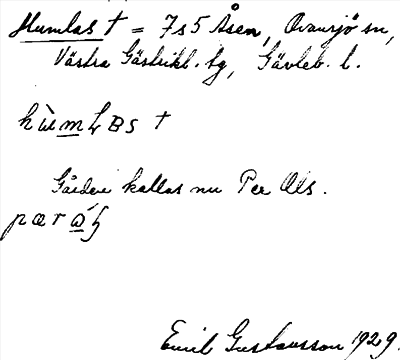 Humlas † = 7s5 Åsen, Ovansjö sn,
Västra Gästrikl. tg, Gävleb. l.
† 
Gården kallas nu Per Ols.
Emil Gustavsson 1929.